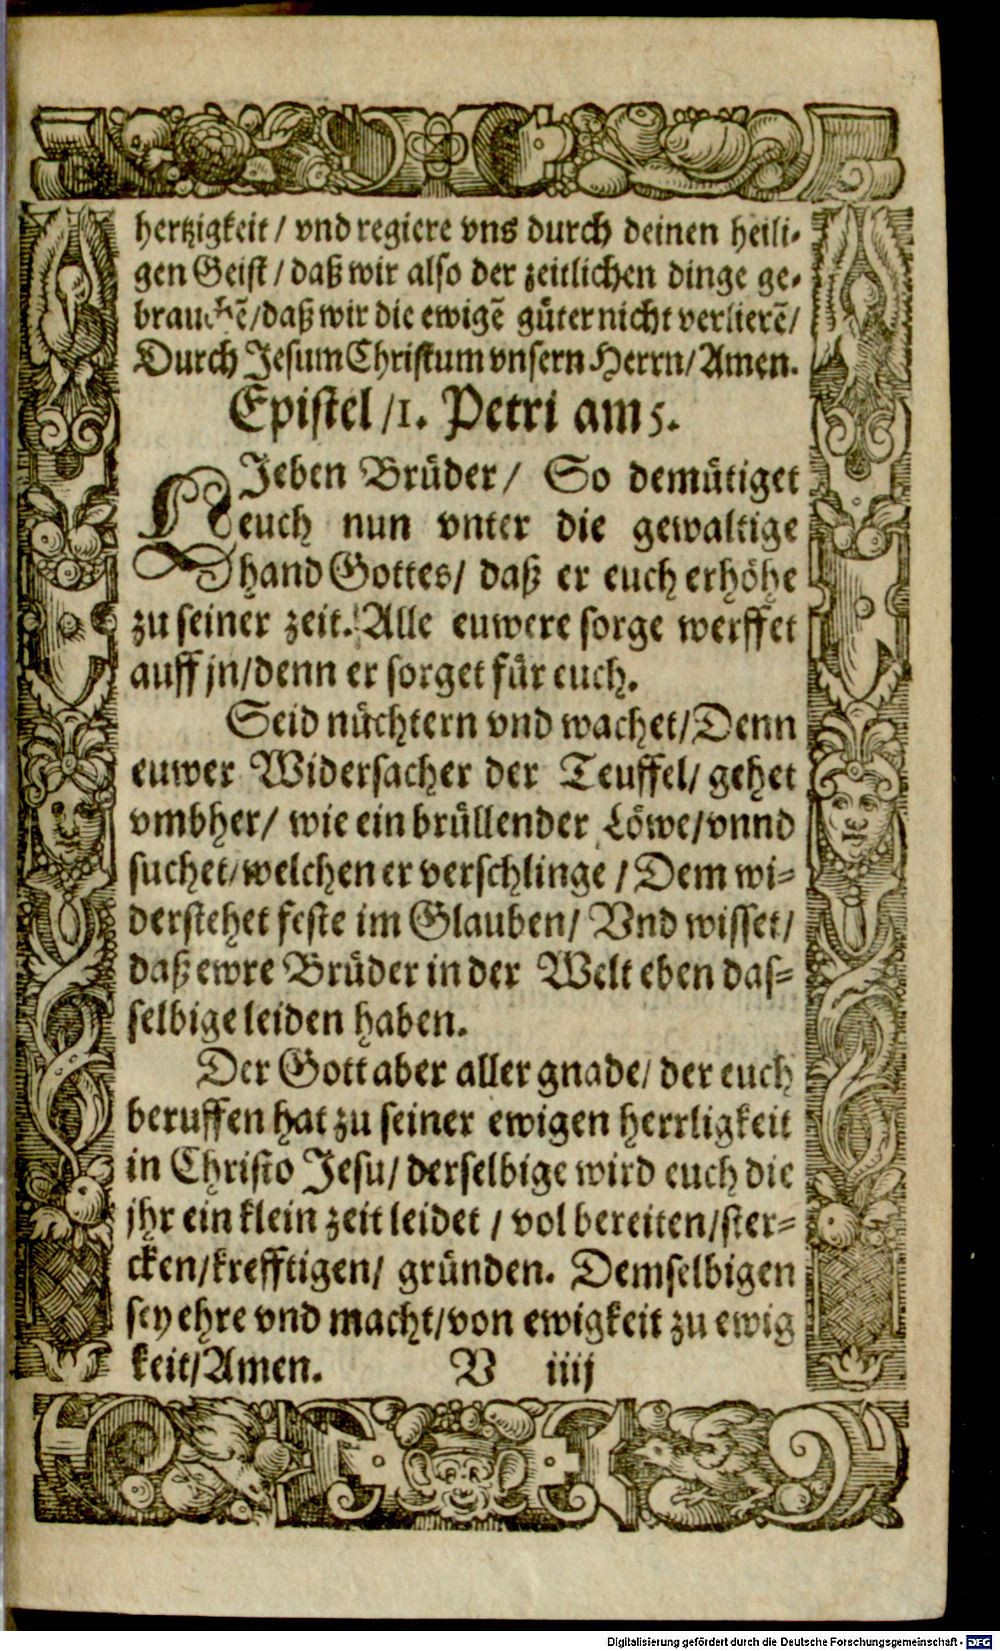 hertzigkeit / vnd regiere vns durch deinen heili-
gen Geist / daß wir also der zeitlichen dinge ge-
brauchẽ/daß wir die ewigẽ güter nicht verlierẽ/
Durch Jesum Christum vnsern Herrn/Amen.
Epistel /1. Petri am 5.
LJeben Brüder/ So demütiget
euch nun vnter die gewaltige
hand Gottes/ daß er euch erhöhe
zu seiner zeit. Alle euwere sorge werffet
auff jn/denn er sorget für euch.
Seid nüchtern vnd wachet/Denn
euwer Widersacher der Teuffel/ gehet
vmbher/ wie ein brüllender Löwe/vnnd
suchet/welchen er verschlinge / Dem wi-
derstehet feste im Glauben/ Vnd wisset/
daß ewre Brüder in der Welt eben das-
selbige leiden haben.
Der Gott aber aller gnade/ der euch
beruffen hat zu seiner ewigen herrligkeit
in Christo Jesu/ derselbige wird euch die
jhr ein klein zeit leidet / vol bereiten/ster-
cken/krefftigen/ gründen. Demselbigen
sey ehre vnd macht/von ewigkeit zu ewig
keit/Amen. V iiij
Digitalisierung gefördert durch die Deutsche Forschungsgemeinschaft - DFG